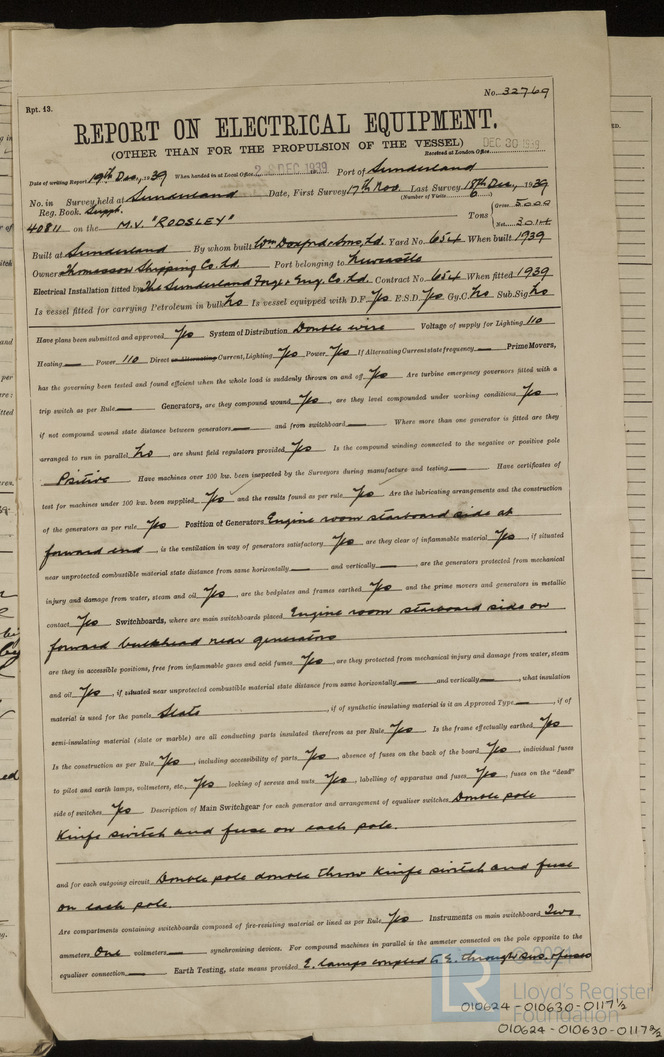 No. 32769
Rpt. 13.
REPORT ON ELECTRICAL EQUIPMENT.
(OTHER THAN FOR THE PROPULSION OF THE VESSEL)
Received at London Office DEC 30 1939
Date of writing Report 19th Dec., 1939 When handed in at Local Office 2 DEC 1939 Port of Sunderland
No. in Survey held at Sunderland Date, First Survey 17th Nov Last Survey 18th Dec., 1939
Reg. Book. Suppt. (Number of Visits 6)
40811 on the M.V. "RODSLEY" Tons { Gross 5000 Net 3014
Built at Sunderland By whom built Wm Doxford & Sons, Ld. Yard No. 654 When built 1939
Owners Thomasson Shipping Co. Ld Port belonging to Newcastle
Electrical Installation fitted by The Sunderland Forge & Engy. Co. Ld. Contract No. 654 When fitted 1939
Is vessel fitted for carrying Petroleum in bulk No Is vessel equipped with D.F. Yes E.S.D. Yes Gy.C. No Sub.Sig. No
Have plans been submitted and approved Yes System of Distribution Double wire Voltage of supply for Lighting 110
Heating — Power 110 Direct or Alternating Current, Lighting Yes Power Yes If Alternating Current state frequency — Prime Movers,
has the governing been tested and found efficient when the whole load is suddenly thrown on and off Yes Are turbine emergency governors fitted with a
trip switch as per Rule — Generators, are they compound wound Yes, are they level compounded under working conditions Yes,
if not compound wound state distance between generators — and from switchboard — Where more than one generator is fitted are they
arranged to run in parallel No, are shunt field regulators provided Yes Is the compound winding connected to the negative or positive pole
Positive Have machines over 100 kw. been inspected by the Surveyors during manufacture and testing — Have certificates of
test for machines under 100 kw. been supplied Yes and the results found as per rule Yes Are the lubricating arrangements and the construction
of the generators as per rule Yes Position of Generators Engine room starboard side at
forward end, is the ventilation in way of generators satisfactory Yes are they clear of inflammable material Yes, if situated
near unprotected combustible material state distance from same horizontally — and vertically —, are the generators protected from mechanical
injury and damage from water, steam and oil Yes, are the bedplates and frames earthed Yes and the prime movers and generators in metallic
contact Yes Switchboards, where are main switchboards placed Engine room starboard side on
forward bulkhead near generators
are they in accessible positions, free from inflammable gases and acid fumes Yes, are they protected from mechanical injury and damage from water, steam
and oil Yes, if situated near unprotected combustible material state distance from same horizontally — and vertically —, what insulation
material is used for the panels Slate, if of synthetic insulating material is it an Approved Type —, if of
semi-insulating material (slate or marble) are all conducting parts insulated therefrom as per Rule Yes Is the frame effectually earthed Yes
Is the construction as per Rule Yes, including accessibility of parts Yes, absence of fuses on the back of the board Yes, individual fuses
to pilot and earth lamps, voltmeters, etc., Yes locking of screws and nuts Yes, labelling of apparatus and fuses Yes, fuses on the "dead"
side of switches Yes Description of Main Switchgear for each generator and arrangement of equaliser switches Double pole
Knife switch and fuse on each pole.
and for each outgoing circuit Double pole double throw Knife switch and fuse
on each pole.
Are compartments containing switchboards composed of fire-resisting material or lined as per Rule Yes Instruments on main switchboard Two
ammeters One voltmeters — synchronizing devices. For compound machines in parallel is the ammeter connected on the pole opposite to the
equaliser connection — Earth Testing, state means provided E. lamps coupled to E. through sws. & fuses
© 2021
LR
Lloyd's Register
Foundation
010624-010630-0117 1/2
010624-010630-0117 2/2